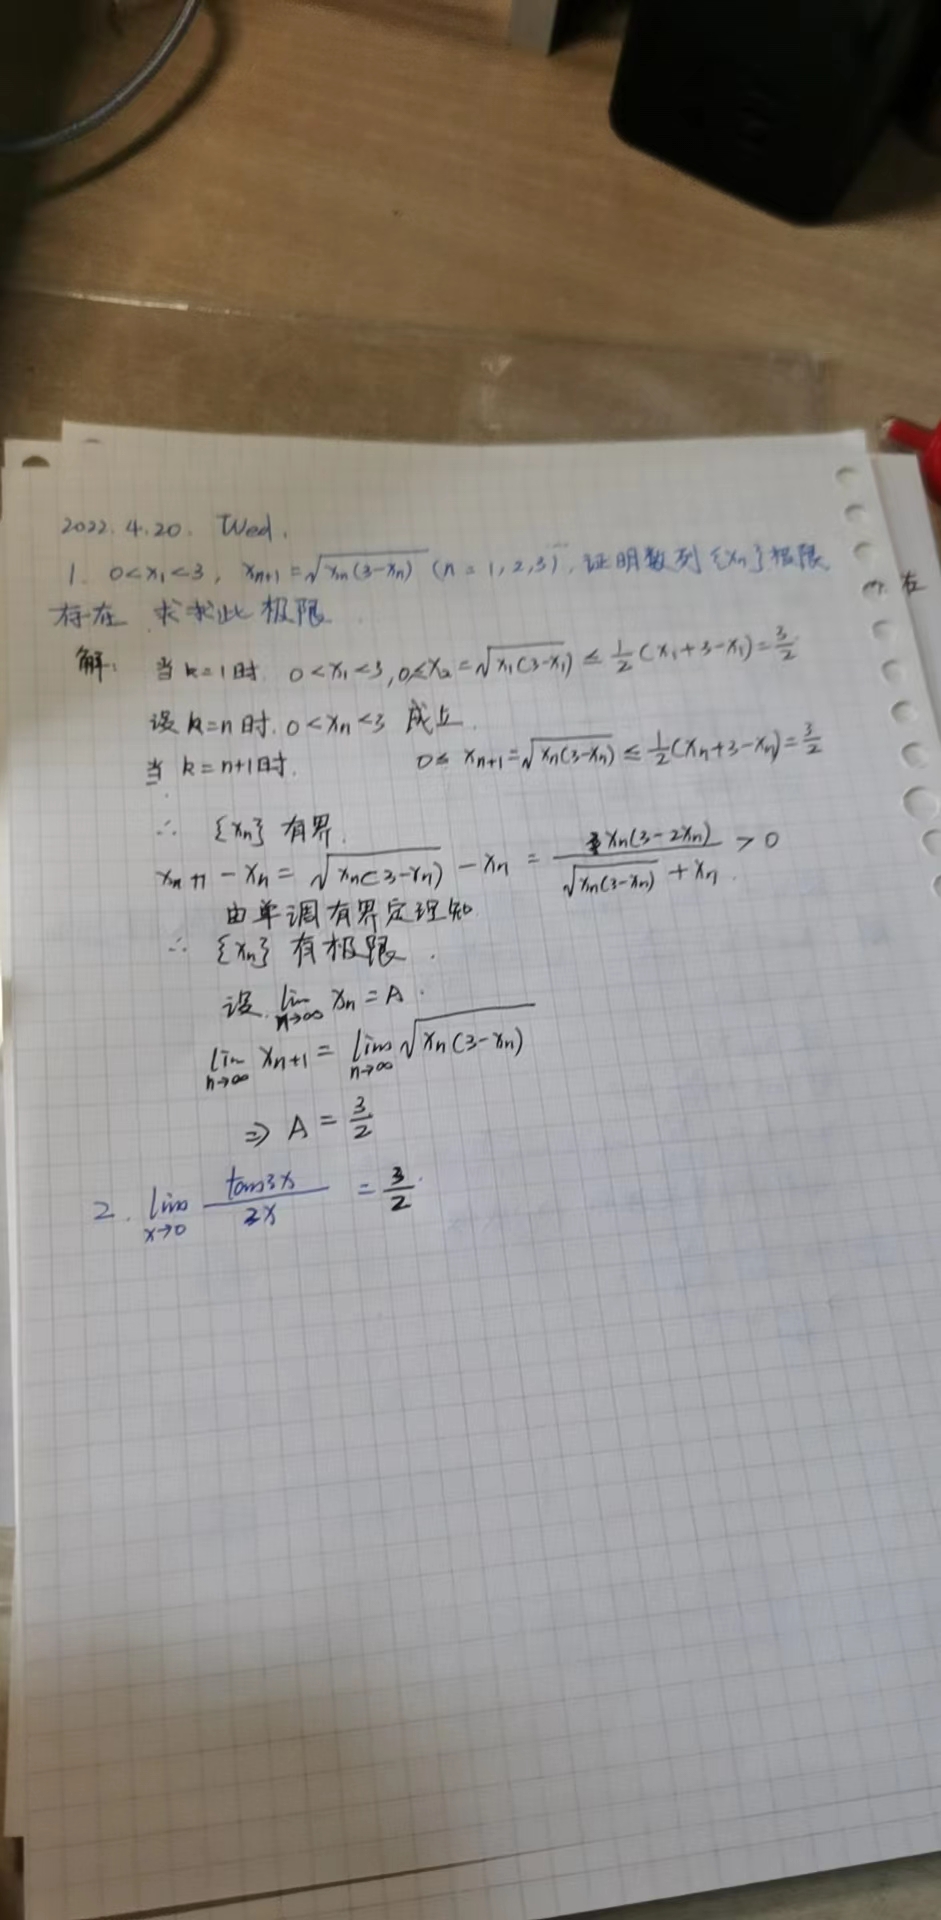 2022.4.20. Wed.
1. 0<x₁<3, xₙ₊₁=√(xₙ(3-xₙ)) (n=1,2,3)…, 证明数列{xₙ}极限
存在 求求此极限.
解: 当k=1时 0<x₁<3, 0<x₂=√(x₁(3-x₁))≤1/2(x₁+3-x₁)=3/2
设k=n时, 0<xₙ<3 成立.
当k=n+1时. 0≤xₙ₊₁=√(xₙ(3-xₙ))≤1/2(xₙ+3-xₙ)=3/2
∴ {xₙ}有界.
xₙ₊₁-xₙ=√(xₙ(3-xₙ))-xₙ=xₙ(3-2xₙ)/(√(xₙ(3-xₙ))+xₙ)>0
由单调有界定理知
∴ {xₙ}有极限.
设 lim n→∞ xₙ=A.
lim n→∞ xₙ₊₁=lim n→∞ √(xₙ(3-xₙ))
⇒ A=3/2
2. lim x→0 tan3x/2x =3/2.
在